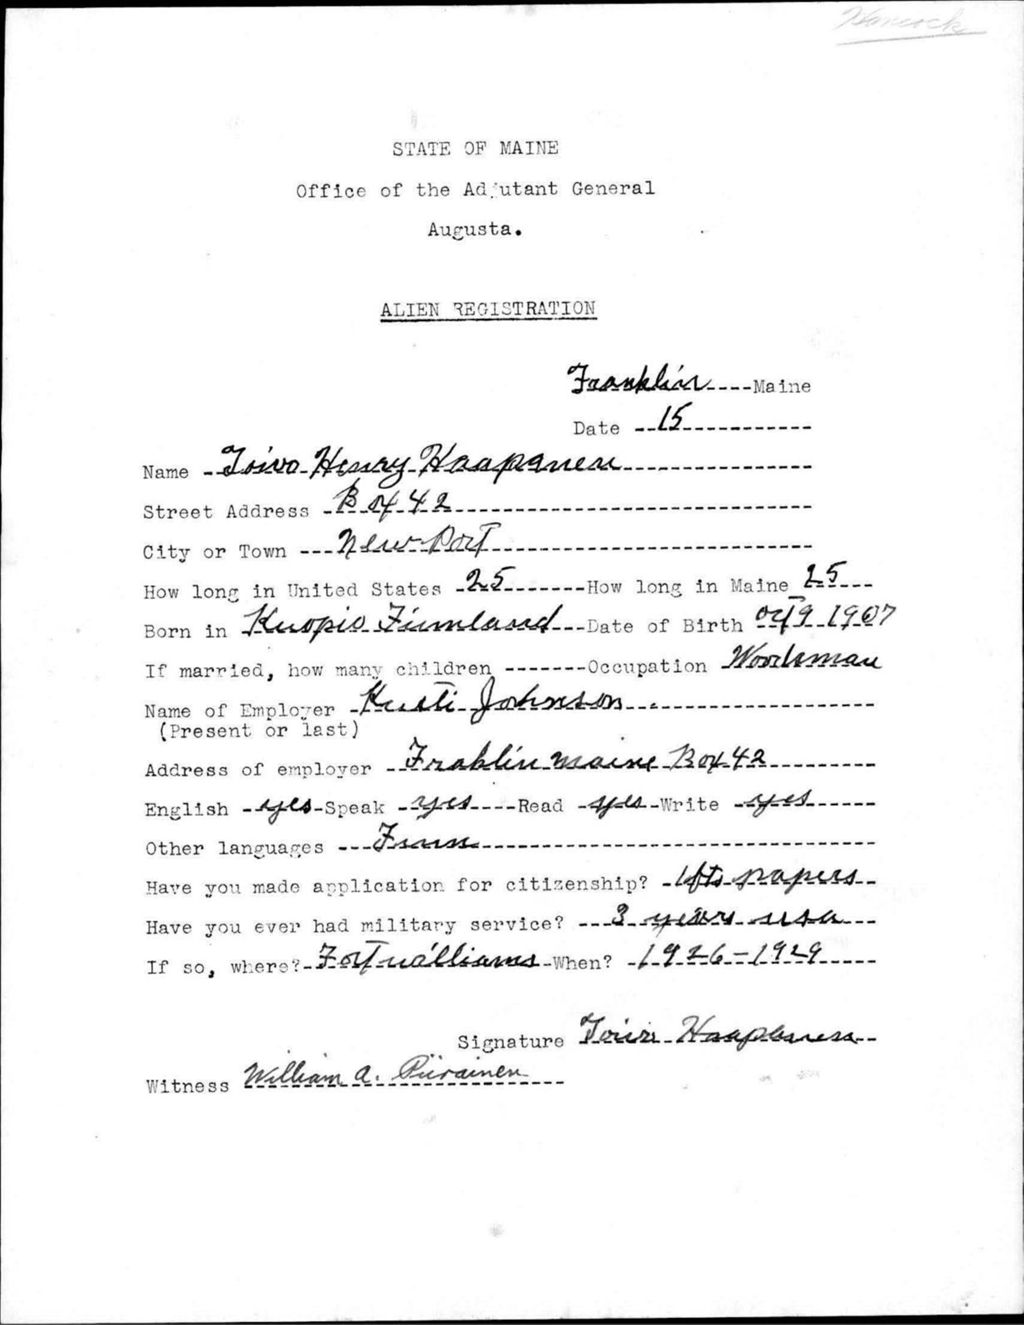 Hancock
STATE OF MAINE
Office of the Adjutant General
Augusta.
ALIEN REGISTRATION
Franklin Maine
Date 15
Name Toivo Henry Haapanen
Street Address Box 42
City or Town New Port
How long in United States 25 How long in Maine 25
Born in Kuopio Finnland Date of Birth Oct 9 1907
If married, how many children Occupation Woodsman
Name of Employer Kusti Johnson
(Present or last)
Address of employer Fraklin maine Box 42
English yes Speak yes Read yes Write yes
Other languages Finn
Have you made application for citizenship? 1fts papers
Have you ever had military service? 3 years usa
If so, where? Fort williams When? 1926-1929
Signature Toivo Haapanen
Witness William A. Piirainen